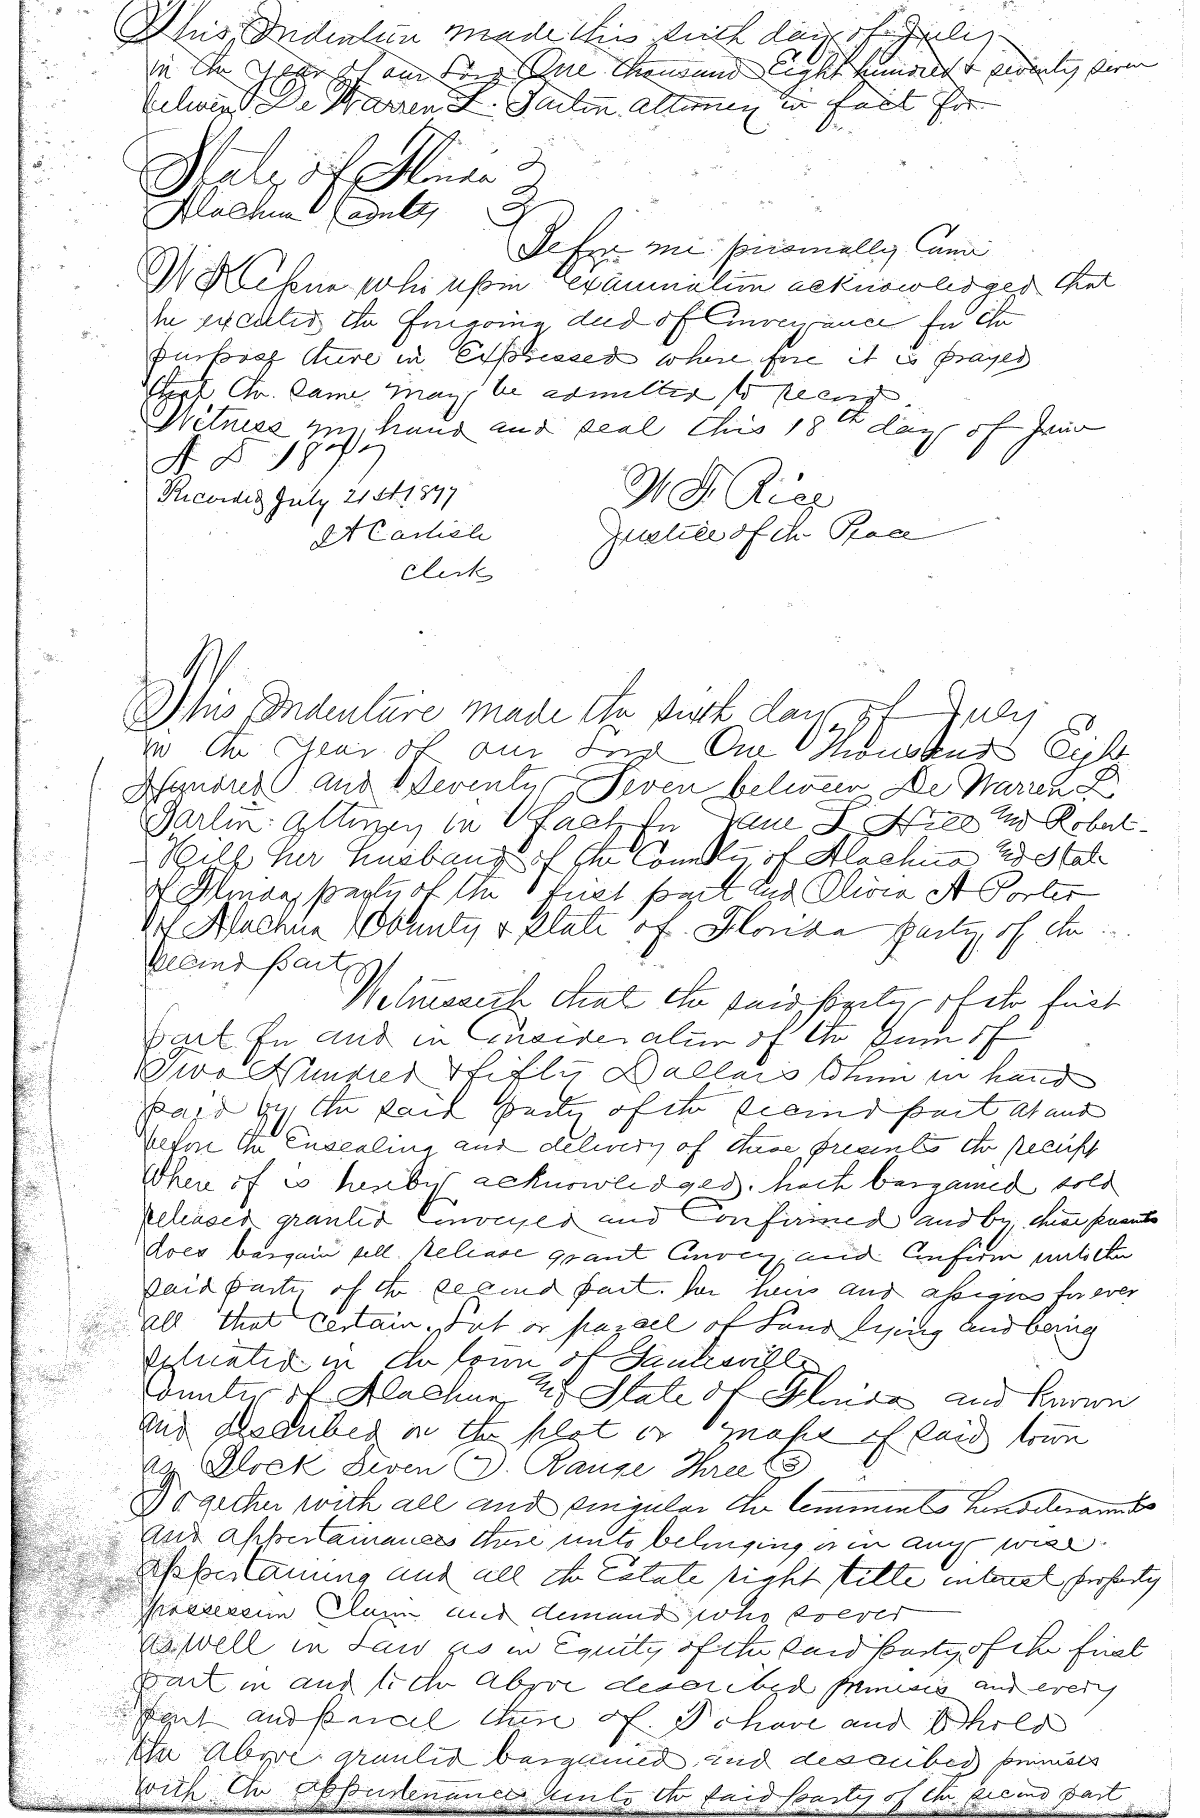 This Indenture made this sixth day of July
in the Year of our Lord One thousand Eight hundred & seventy seven
between De Warren L. Parlin attorney in fact for
State of Florida
Alachua County
Before me personally Came
W K Cessna who upon examination acknowledged that
he excuted the foregoing deed of Conveyance for the
purposes there in Expressed where fore it is prayed
that the same may be admitted to record
Witness my hand and seal this 18th day of June
A D 1877
Recorded July 21st 1877
W F Rice
J A Carlisle
Justice of the Peace
Clerk
This Indenture made the sixth day of July
in the Year of our Lord One Thousand Eight
Hundred and Seventy Seven between De Warren L
Parlin attorney in fact for Jane L Hill and Robert
Hill her husband of the County of Alachua and State
of Florida party of the first part and Olivia A Porter
of Alachua County & State of Florida party of the
second part
Witnesseth that the said party of the first
part for and in Consideration of the sum of
Two Hundred & fifty Dollars to him in hand
paid by the said party of the second part at and
before the Ensealing and delivery of these presents the receipt
Where of is hereby acknowledged. hath bargained sold
released granted Conveyed and Confirmed and by these presents
does bargain sell release grant Convey and Confirm unto the
said party of the second part her heirs and assigns for ever
all that certain Lot or parcel of Land lying and being
situated in the town of Gainesville
County of Alachua and State of Florida and known
and described on the plot or maps of said town
as Block Seven (7). Range Three (3)
Together with all and singular the tenements hereditaments
and appertainances there unto belonging or in any wise
appertaining and all the Estate right title interest property
possession Claim and demand who soever
as well in Law as in Equity of the said party of the first
part in and to the above described premises and every
part and parcel there of. To have and to hold
the above granted bargained and described premises
with the appurtenances unto the said party of the second part